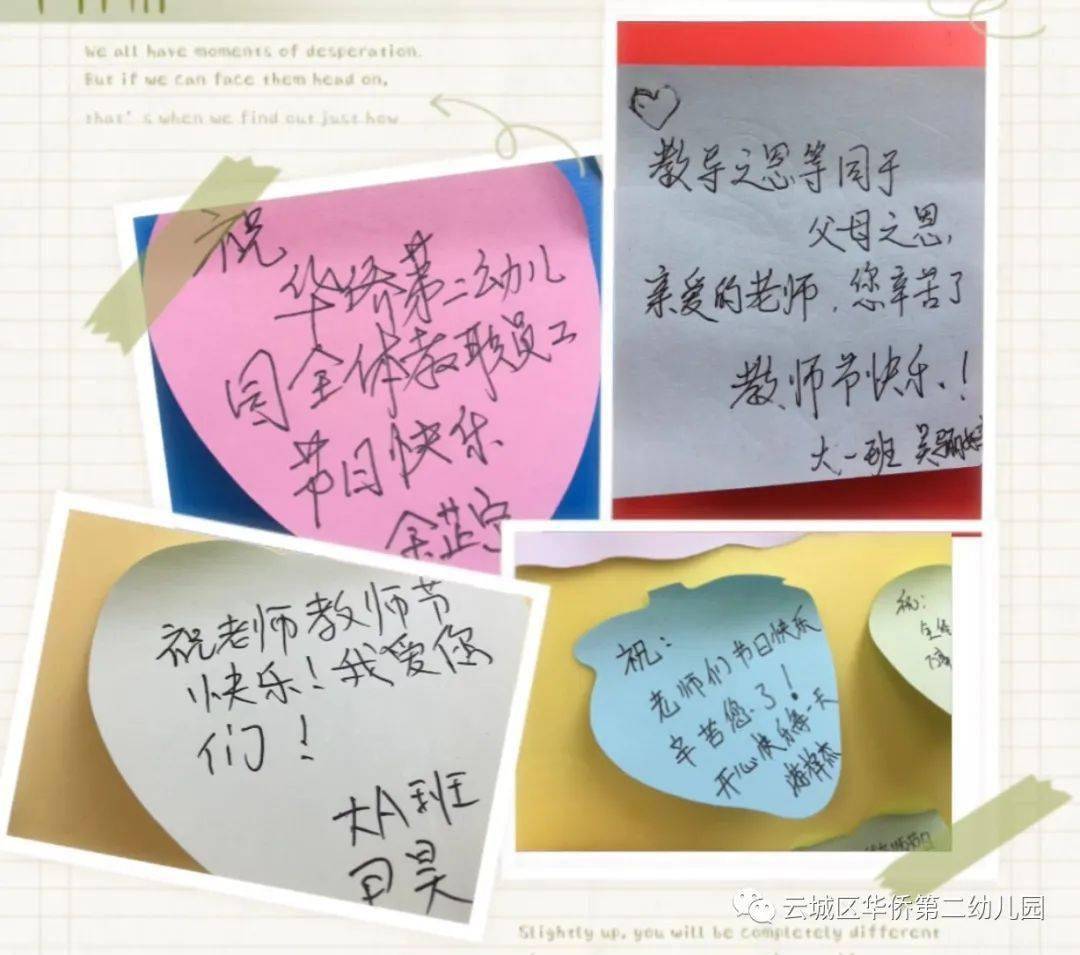 We all have moments of desperation.
But if we can face them head on,
that's when we find out just how
祝
华侨第二幼儿
园全体教职员工
节日快乐
教导之恩等同于
父母之恩,
亲爱的老师,您辛苦了
教师节快乐!
大一班
祝老师教师节
快乐!我爱您
们!
大A班
日昊
祝:
老师们节日快乐
辛苦您了!
开心快乐每一天
祝:
云城区华侨第二幼儿园
Slightly up, you will be completely different